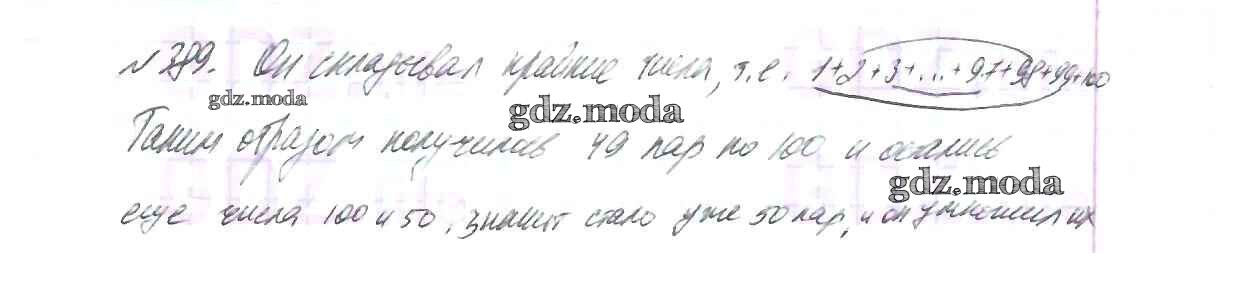 № 389. Он складывал крайние числа, т.е. 1+2+3+...+97+98+99+100
gdz.moda
gdz.moda
Таким образом получилось 49 пар по 100 и остались
gdz.moda
еще числа 100 и 50, значит стало уже 50 пар, и он умножил их